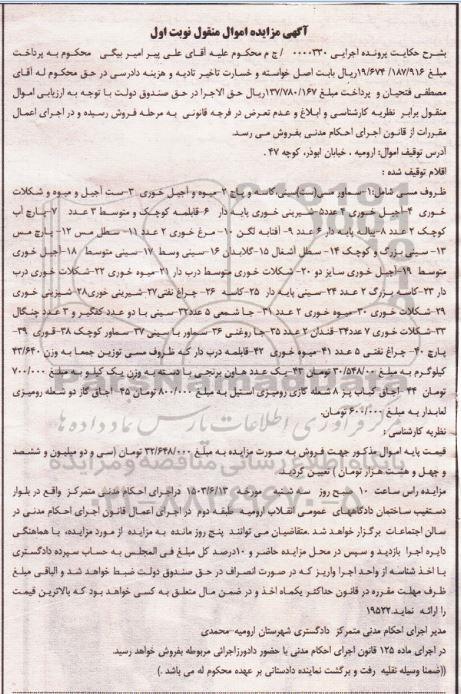 آگهی مزایده اموال منقول نوبت اول
بشرح حکایت پرونده اجرایی ۰۰۰۰۳۳۰ / ج م محکوم علیه آقای علی پیر امیر بیگی محکوم به پرداخت
مبلغ ۱۹/۶۷۴/۱۸۷/۹۱۶ریال بابت اصل خواسته و خسارت تاخیر تادیه و هزینه دادرسی در حق محکوم له آقای
مصطفی فتحیان و پرداخت مبلغ ۱۳۷/۷۸۰/۱۶۷ریال حق الاجرا در حق صندوق دولت با توجه به ارزیابی اموال
منقول برابر نظریه کارشناسی و ابلاغ و عدم تعرض در فرجه قانونی به مرحله فروش رسیده و در اجرای اعمال
مقررات از قانون اجرای احکام مدنی بفروش می رسد.
آدرس توقیف اموال: ارومیه ، خیابان ابوذر، کوچه ۴۷ .
اقلام توقیف شده :
ظروف مسی شامل:۱-سماور مس(ست)سینی،کاسه و پاچ ۲-میوه و آجیل خوری ۳-ست آجیل و میوه و شکلات
خوری ۴-آجیل خوری ۲ عدد۵-شیرینی خوری پایه دار ۶-قابلمه کوچک و متوسط ۳ عدد ۷-پارچ آب
کوچک ۲ عدد ۸-پیاله پایه دار ۶ عدد ۹-آفتابه لگن ۱۰- مرغ خوری ۲ عدد ۱۱-سطل مس ۱۲- پارچ مس
۱۳-سینی بزرگ و کوچک ۱۴- سطل آشغال ۱۵-گلابدان ۱۶-سینی وسط ۱۷-سینی متوسط ۱۸-آجیل خوری
متوسط ۱۹-آجیل خوری سایز دو ۲۰-شکلات خوری متوسط درب دار ۲۱-میوه خوری ۲۲-شکلات خوری درب
دار ۲۳-کاسه بزرگ ۲ عدد ۲۴-سینی پایه دار ۲۵-کاسه ۲۶- چراغ نفتی۲۷-شیرینی خوری۲۸-شیرینی خوری
۲۹-شکلات خوری ۳۰-میوه خوری ۲ عدد ۳۱- جا شمعی ۵ عدد۳۲-سینی با دو عدد کفگیر و ۳ عدد چنگال
۳۳-شکلات خوری ۷ عدد۳۴- قندان ۲ عدد ۳۵-جا روغنی ۳۶-سماور با سینی ۳۷-سماور کوچک ۳۸-قوری ۳۹-
پارچ ۴۰- چراغ نفتی ۵ عدد ۴۱-میوه خوری ۴۲-قابلمه درب دار که ظروف مسی توزین جمعا به وزن ۴۳/۶۴۰
کیلوگرم به مبلغ ۳۰/۵۴۸/۰۰۰ تومان ۴۳-یک عدد هاون برنجی با دسته به وزن یک کیلو به مبلغ ۷۰۰/۰۰۰
تومان ۴۴-اجاق کباب پز ۸ شعله گازی رومیزی استیل به مبلغ ۸۰۰/۰۰۰ تومان ۴۵-اجاق گاز دو شعله رومیزی
لعابدار به مبلغ ۶۰۰/۰۰۰ تومان.
نظریه کارشناسی :
قیمت پایه اموال مذکور جهت فروش به صورت مزایده به مبلغ ۳۲/۶۴۸/۰۰۰ تومان (سی و دو میلیون و ششصد
و چهل و هشت هزار تومان ) تعیین گردید.
مزایده راس ساعت ۱۰ صبح روز سه شنبه مورخه ۱۵۰۳/۶/۱۳ دراجرای احکام مدنی متمرکز واقع در بلوار
دستغیب ساختمان دادگاههای عمومی انقلاب ارومیه طبقه دوم در اجرای اعمال قانون اجرای احکام مدنی در
سالن اجتماعات برگزار خواهد شد .متقاضیان می توانند پنج روز مانده به مزایده از مورد مزایده، با هماهنگی
دایره اجرا بازدید و سپس در محل مزایده حاضر و ۱۰درصد کل مبلغ فی المجلس به حساب سپرده دادگستری
با اخذ شناسه از واحد اجرا واریز که در صورت انصراف در حق صندوق دولت ضبط خواهد شد و الباقی مبلغ
ظرف مهلت مقرره در قانون حداکثر یکماه اخذ و در ضمن مال متعلق به کسی خواهد بود که بالاترین قیمت
را ارائه نماید.۱۹۵۲۲
مدیر اجرای احکام مدنی متمرکز دادگستری شهرستان ارومیه-محمدی
در اجرای ماده ۱۲۵ قانون اجرای احکام مدنی با حضور دادورزاجرائی مربوطه بفروش خواهد رسید.
((ضمنا وسیله نقلیه رفت و برگشت نماینده دادستانی بر عهده محکوم له می باشد .)
ParsNamadData
مرکز فرآوری اطلاعات پارس نماد داده ها